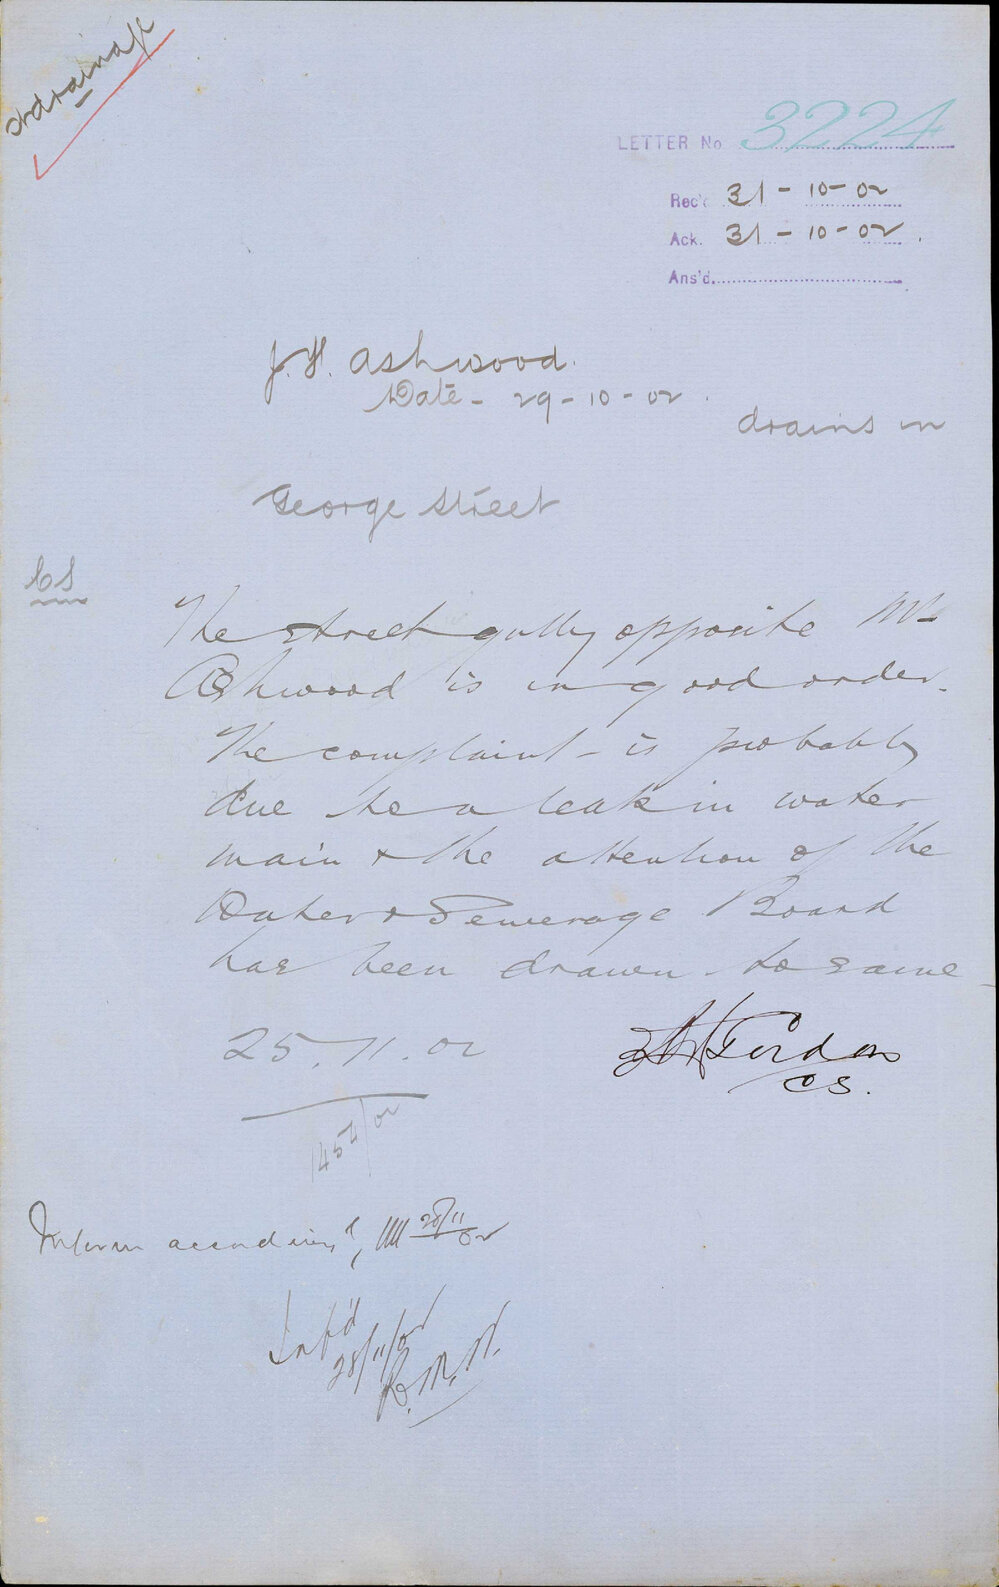 drainage
LETTER No 3224
Rec'd 31-10-02
Ack. 31-10-02.
Ans'd.
J. H. Ashwood.
Date - 29-10-02.
drains in
George Street
CS
The street gully opposite Mr
Ashwood is in good order.
The complaint is probably
due to a leak in water
main & the attention of the
Water & Sewerage Board
has been drawn to same
25.11.02
Gordon
CS.
1454/02
Inform accordingly,
Inf'd
28/11/02